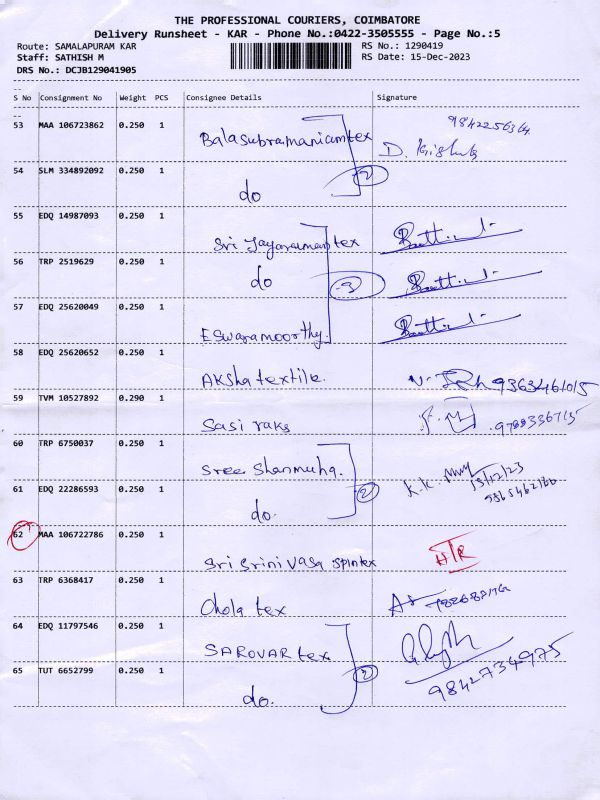 THE PROFESSIONAL COURIERS, COIMBATORE
Delivery Runsheet - KAR - Phone No.:0422-3505555 - Page No.:5
Route: SAMALAPURAM KAR RS No.: 1290419
Staff: SATHISH M RS Date: 15-Dec-2023
DRS No.: DCJB129041905
--
S No Consignment No Weight PCS Consignee Details Signature
--
53 MAA 106723862 0.250 1 Balasubramaniamtex 9842256364
D.
54 SLM 334892092 0.250 1 do 2
55 EDQ 14987093 0.250 1 Sri Jayaramantex
56 TRP 2519629 0.250 1 do 3
57 EDQ 25620049 0.250 1 Eswaramoorthy.
58 EDQ 25620652 0.250 1 Akshatextile. 9363461015
59 TVM 10527892 0.290 1 Sasi raks 9788336715
60 TRP 6750037 0.250 1 Sree Shanmuha. K.K. 15/12/23
61 EDQ 22286593 0.250 1 do. 2
62 MAA 106722786 0.250 1 Sri Srinivasa spintex
63 TRP 6368417 0.250 1 Chola tex
64 EDQ 11797546 0.250 1 SAROVAR tex 2
65 TUT 6652799 0.250 1 do. 9842734975